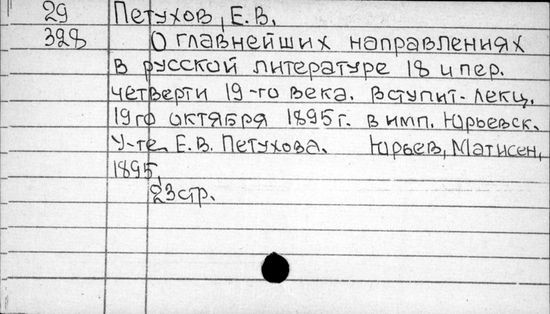 29 Петухов, Е.В.
328 О главнейших направлениях
в русской литературе 18 и пер.
четверти 19-го века. Вступит. лекц.
19го октября 1895г. в имп. Юрьевск.
У-те Е.В. Петухова. Юрьев, Матисен,
1895,
23стр.